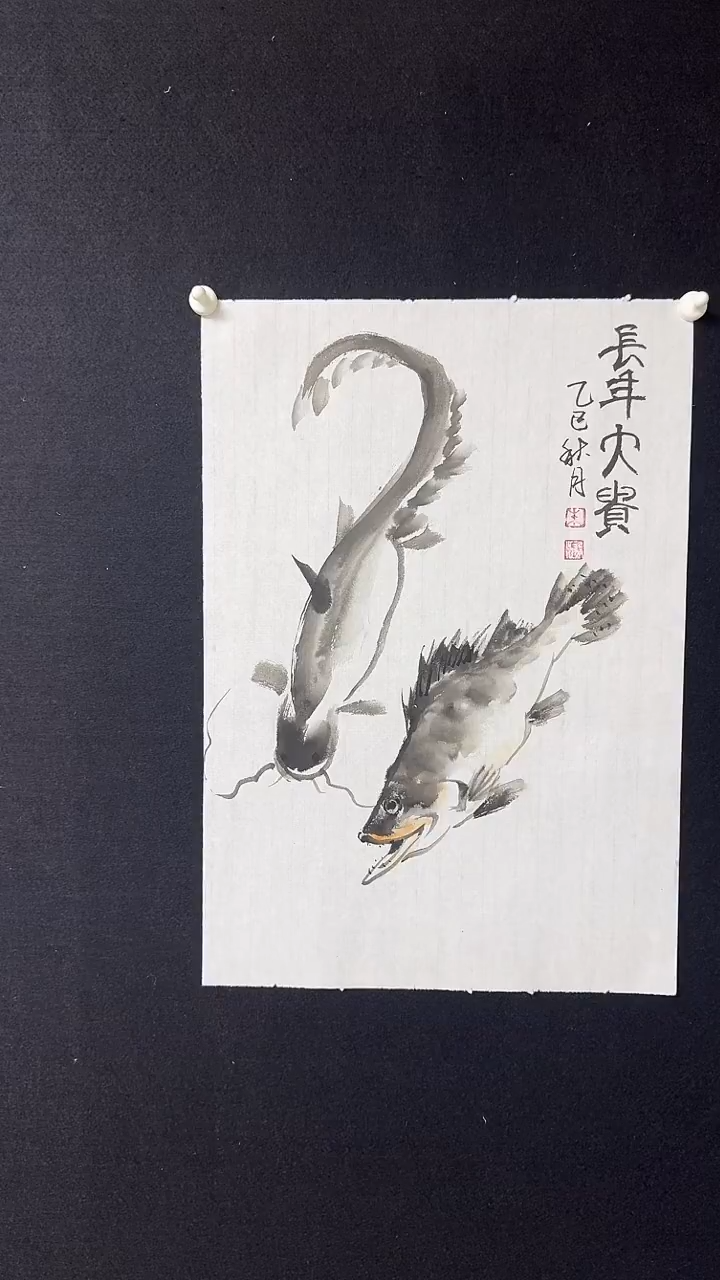 長年大貴
乙巳秋月